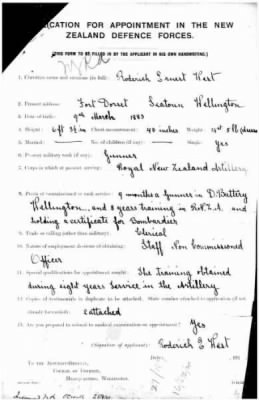 APPLICATION FOR APPOINTMENT IN THE NEW
ZEALAND DEFENCE FORCES.
[THIS FORM TO BE FILLED IN BY THE APPLICANT IN HIS OWN HANDWRITING.]
1. Christian name and surname (in full): Roderich Ernest West
2. Present address: Fort Dorset Seatoun Wellington
3. Date of birth: 9th March 1883
4. Height: 6 ft in Chest measurement: 40 inches Weight: 12st 8 lb
5. Married: No. of children (if any): Single: Yes
6. Present military rank (if any): Gunner
7. Corps in which at present serving: Royal New Zealand Artillery
8. Period of commissioned or rank service: 9 months a Gunner in D. Battery
Wellington, and 8 years training in R.N.Z.A. and
holding a certificate for Bombardier
9. Trade or calling (other than military): Clerical
10. Nature of employment desirous of obtaining: Staff Non Commissioned
Officer
11. Special qualifications for appointment sought: The training obtained
during eight years Service in the Artillery
12. Copies of testimonials in duplicate to be attached. State number attached to application (if not
already forwarded): 2 attached
13. Are you prepared to submit to medical examination on appointment? Yes
(Signature of applicant): Roderich E West
Date: 191
TO THE ADJUTANT-GENERAL,
COUNCIL OF DEFENCE,
HEADQUARTERS, WELLINGTON.